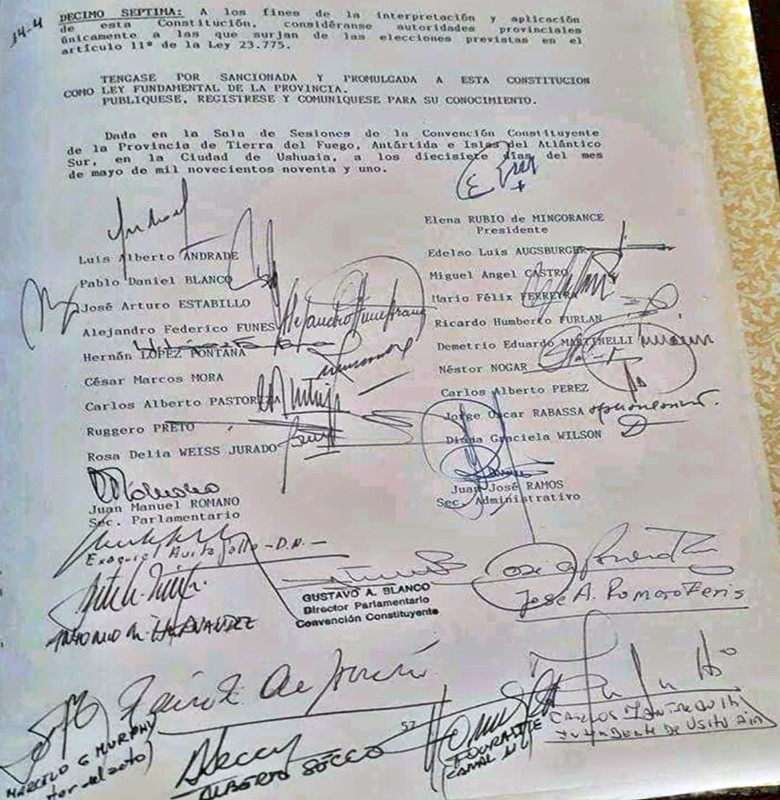 14-4
DECIMO SEPTIMA: A los fines de la interpretación y aplicación
de esta Constitución, considéranse autoridades provinciales
únicamente a las que surjan de las elecciones previstas en el
artículo 11º de la Ley 23.775.
TENGASE POR SANCIONADA Y PROMULGADA A ESTA CONSTITUCION
COMO LEY FUNDAMENTAL DE LA PROVINCIA.
PUBLIQUESE, REGISTRESE Y COMUNIQUESE PARA SU CONOCIMIENTO.
Dada en la Sala de Sesiones de la Convención Constituyente
de la Provincia de Tierra del Fuego, Antártida e Islas del Atlántico
Sur, en la Ciudad de Ushuaia, a los diecisiete días del mes
de mayo de mil novecientos noventa y uno.
Elena RUBIO de MINGORANCE
Presidente
Luis Alberto ANDRADE
Edelso Luis AUGSBURGER
Pablo Daniel BLANCO
Miguel Angel CASTRO
José Arturo ESTABILLO
Mario Félix FERREYRA
Alejandro Federico FUNES
Ricardo Humberto FURLAN
Hernán LOPEZ FONTANA
Demetrio Eduardo MARTINELLI
César Marcos MORA
Néstor NOGAR
Carlos Alberto PASTORIZA
Carlos Alberto PEREZ
Ruggero PRETO
Jorge Oscar RABASSA
Rosa Delia WEISS JURADO
Diana Graciela WILSON
Juan Manuel ROMANO
Sec. Parlamentario
Juan José RAMOS
Sec. Administrativo
GUSTAVO A. BLANCO
Director Parlamentario
Convención Constituyente
Jose A. Romero Feris
ANTONIO HERNANDEZ
MARCELO G MURPHY
57
ALBERTO SOCCO
CANAL 11
CARLOS